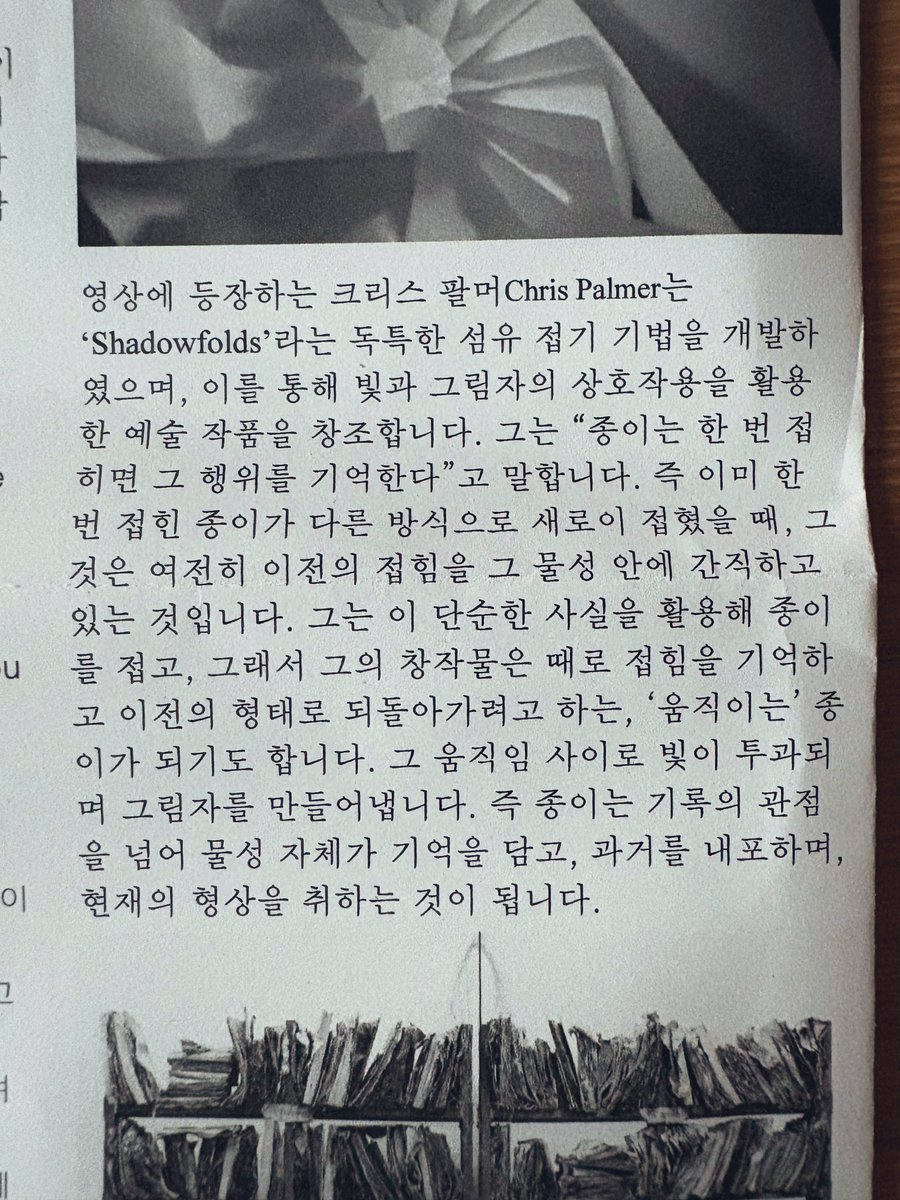 영상에 등장하는 크리스 팔머Chris Palmer는
‘Shadowfolds’라는 독특한 섬유 접기 기법을 개발하
였으며, 이를 통해 빛과 그림자의 상호작용을 활용
한 예술 작품을 창조합니다. 그는 “종이는 한 번 접
히면 그 행위를 기억한다”고 말합니다. 즉 이미 한
번 접힌 종이가 다른 방식으로 새로이 접혔을 때, 그
것은 여전히 이전의 접힘을 그 물성 안에 간직하고
있는 것입니다. 그는 이 단순한 사실을 활용해 종이
를 접고, 그래서 그의 창작물은 때로 접힘을 기억하
고 이전의 형태로 되돌아가려고 하는, ‘움직이는’ 종
이가 되기도 합니다. 그 움직임 사이로 빛이 투과되
며 그림자를 만들어냅니다. 즉 종이는 기록의 관점
을 넘어 물성 자체가 기억을 담고, 과거를 내포하며,
현재의 형상을 취하는 것이 됩니다.